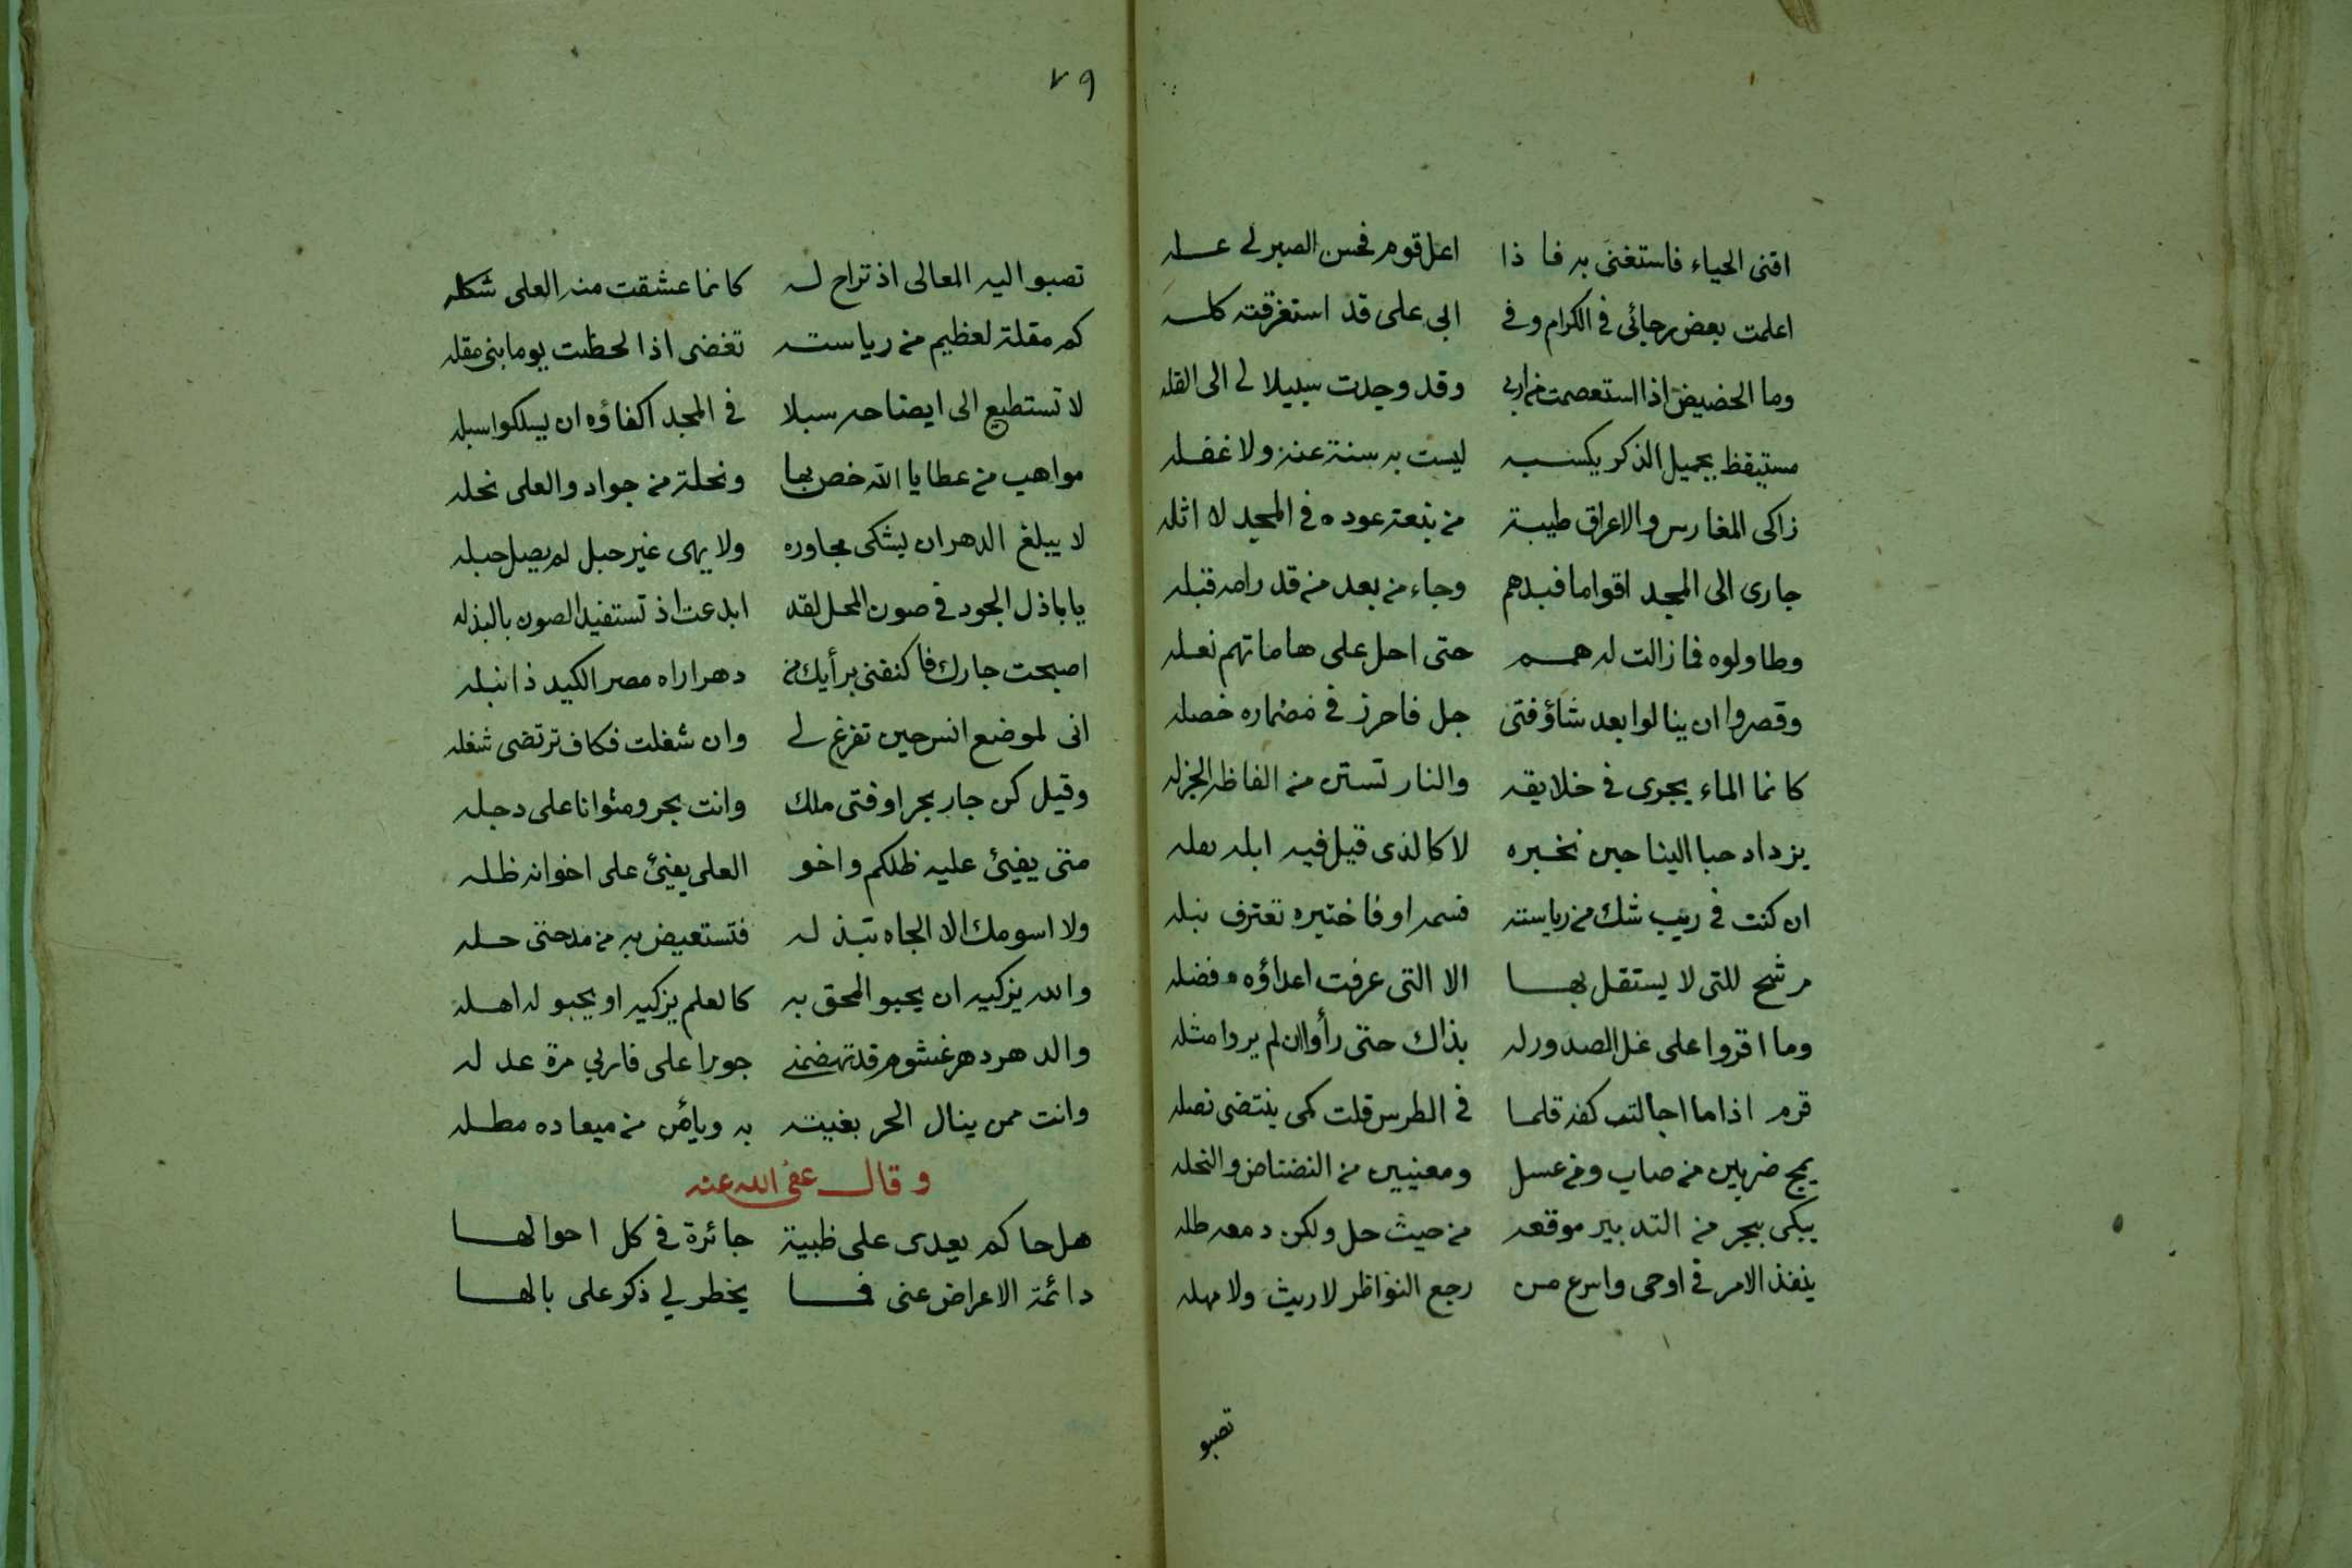 اقنى الحياء فاستغنى به فا ذا اعل قوم فحسن الصبر لى عله
اعلمت بعض رجائى فى الكرام وفى ابى على قد استغرقته كله
وما الحضيض اذا استعصمت من اربى وقد وجدت سبيلا لى الى القله
مستيقظ بجميل الذكر يكسبه ليست به سنة عنه ولا غفله
زاكى المغارس والاعراق طيبة من نبعة عوده فى المجد لا اثله
جارى الى المجد اقواما فبدهم وجاء من بعد من قد رامه قبله
وطاولوه فما زالت له همم حتى احل على هاماتهم نعله
وقصروا ان ينالوا بعد شاؤ فتى جل فاحرز فى مضماره خصله
كانما الماء يجرى فى خلايقه والنار تستن من الفاظه الجزله
يزداد حبا الينا حين نخبره لا كالذى قيل فيه ابله تقله
ان كنت فى ريب شك من رياسته فسمه او فاختبره تعترف نبله
مرشح للتى لا يستقل بها الا التى عرفت اعداؤه فضله
وما اقروا على غل الصدور له بذاك حتى رأوا ان لم يروا مثله
قرم اذا ما اجالت كفه قلما فى الطرس قلت كمى ينتضى نصله
يمج ضربين من صاب ومن عسل ومعنيين من النضناض والنحله
يبكى بجر من التدبير موقعه من حيث حل ولكن دمعه طله
ينفذ الامر فى اوحى واسرع من رجع النواظر لا ريث ولا مهله
تصبو
٧٩
تصبو اليه المعالى اذ تراح له كانما عشقت منه العلى شكله
كم مقلة لعظيم من رياسته تغضى اذا لحظت يوما بنى مقله
لا تستطيع الى ايضاحه سبلا فى المجد اكفاؤه ان يسلكوا سبله
مواهب من عطايا الله خص بها ونحلة من جواد والعلى نحله
لا يبلغ الدهر ان يشكى مجاوره ولا يهى غير حبل لم يصل حبله
يا باذل الجود فى صون المحل لقد ابدعت اذ تستفيد الصون بالبذله
اصبحت جارك فاكنفنى برأيك من دهر اراه مصر الكيد ذا نبله
انى لموضع انس حين تفرغ لى وان شغلت فكاف ترتضى شغله
وقيل كن جار بحر او فتى ملك وانت بحر ومثوانا على دجله
متى يفيئ عليه ظلكم واخو العلى يفيئ على اخوانه ظله
ولا اسومك الا الجاه تبذ له فتستعيض به من مدحتى حله
والله يزكيه ان يحبو المحق به كالعلم يزكيه او يحبو له اهله
والدهر دهر غشوم قد تهضمنى جورا على فاربى مرة عد له
وانت ممن ينال الحر بغيته به ويأمن من ميعاده مطله
وقال عفى الله عنه
هل حاكم يعدى على ظبية جائرة فى كل احوالها
دائمة الاعراض عنى فما يخطر لى ذكر على بالها